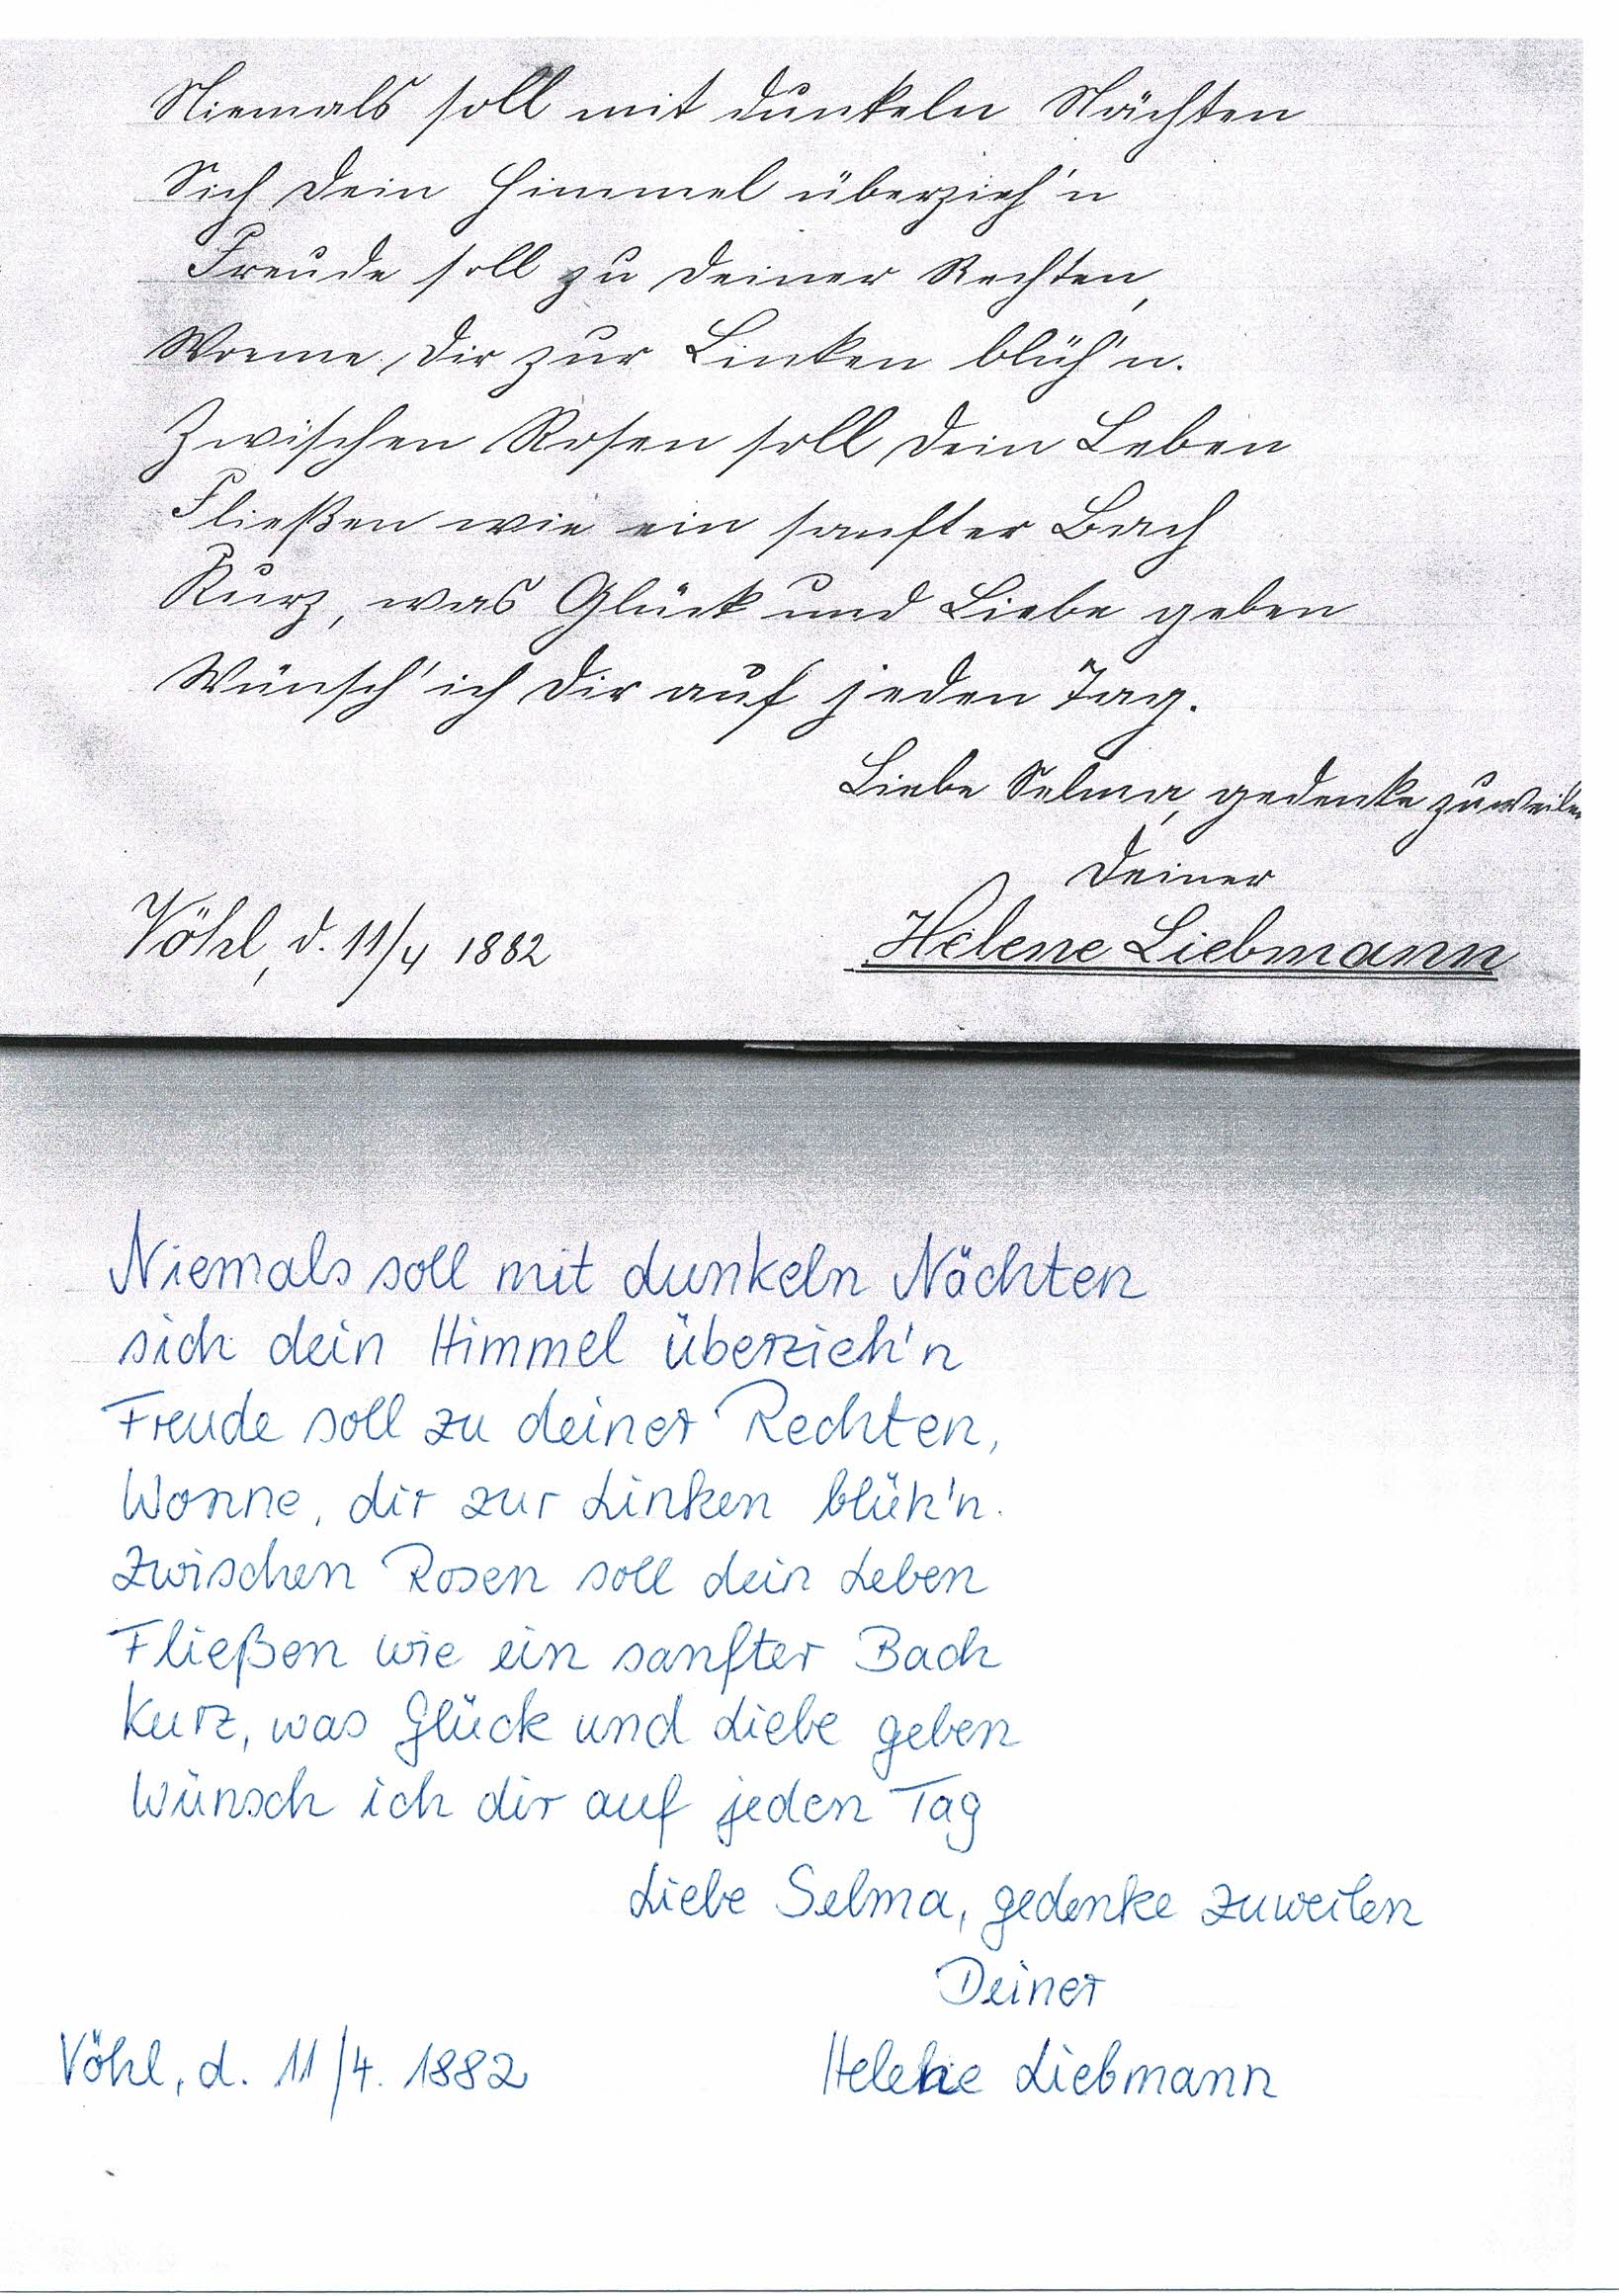 Niemals soll mit dunkeln Nächten
Sich dein Himmel überzieh'n
Freude soll zu deiner Rechten,
Wonne, dir zur Linken blüh'n.
Zwischen Rosen soll dein Leben
Fließen wie ein sanfter Bach
Kurz, was Glück und Liebe geben
Wünsch' ich dir auf jeden Tag.
Liebe Selma, gedenke zuweilen
Deiner
Vöhl, d. 11/4 1882 Helene Liebmann
Niemals soll mit dunkeln Nächten
sich dein Himmel überzieh'n
Freude soll zu deiner Rechten,
Wonne, dir zur Linken blüh'n.
Zwischen Rosen soll dein Leben
Fließen wie ein sanfter Bach
Kurz, was Glück und Liebe geben
Wünsch ich dir auf jeden Tag
Liebe Selma, gedenke zuweilen
Deiner
Vöhl, d. 11/4. 1882 Helene Liebmann